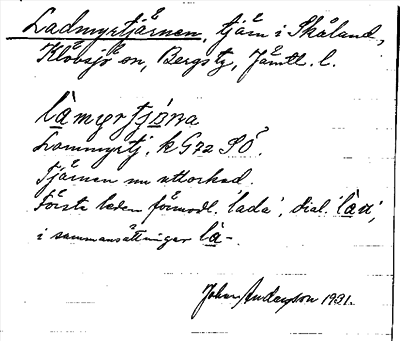 Ladmyrtjärnen, tjärn i Skåland,
Klövsjö sn, Bergs tg, Jämtl. l.
làmyrtjɷ́nna
Lommyrtj. k G 22 SÖ.
Tjärnen nu uttorkad.
Första leden förmodl. 'lada', dial. làn,
i sammansättningar là-.
Johan Anderson 1931.